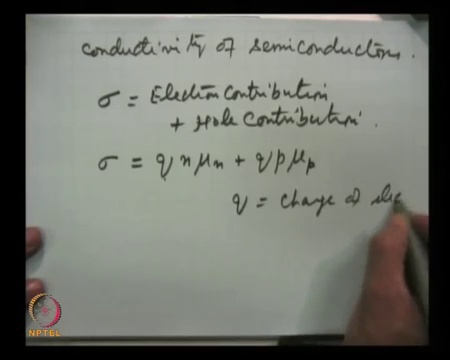 conductivity of semiconductors.
σ = Electron Contribution
+ Hole Contribution.
σ = q n μn + q p μp
q = charge of elec
NPTEL